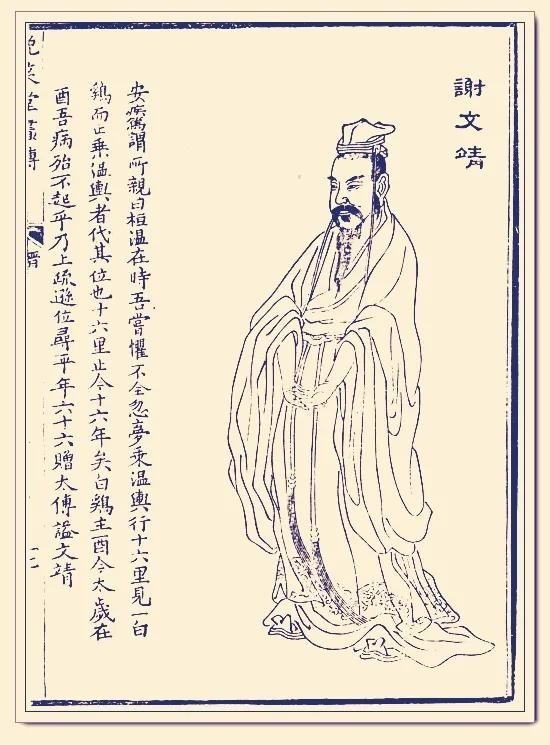 謝文靖
安疾篤謂所親曰桓溫在時吾嘗懼不全忽夢乘溫輿行十六里見一白
鷄而止乘溫輿者代其位也十六里止今十六年矣白鷄主酉今太歲在
酉吾病殆不起乎乃上疏遜位尋卒年六十六贈太傅謚文靖
晚笑堂畫傳